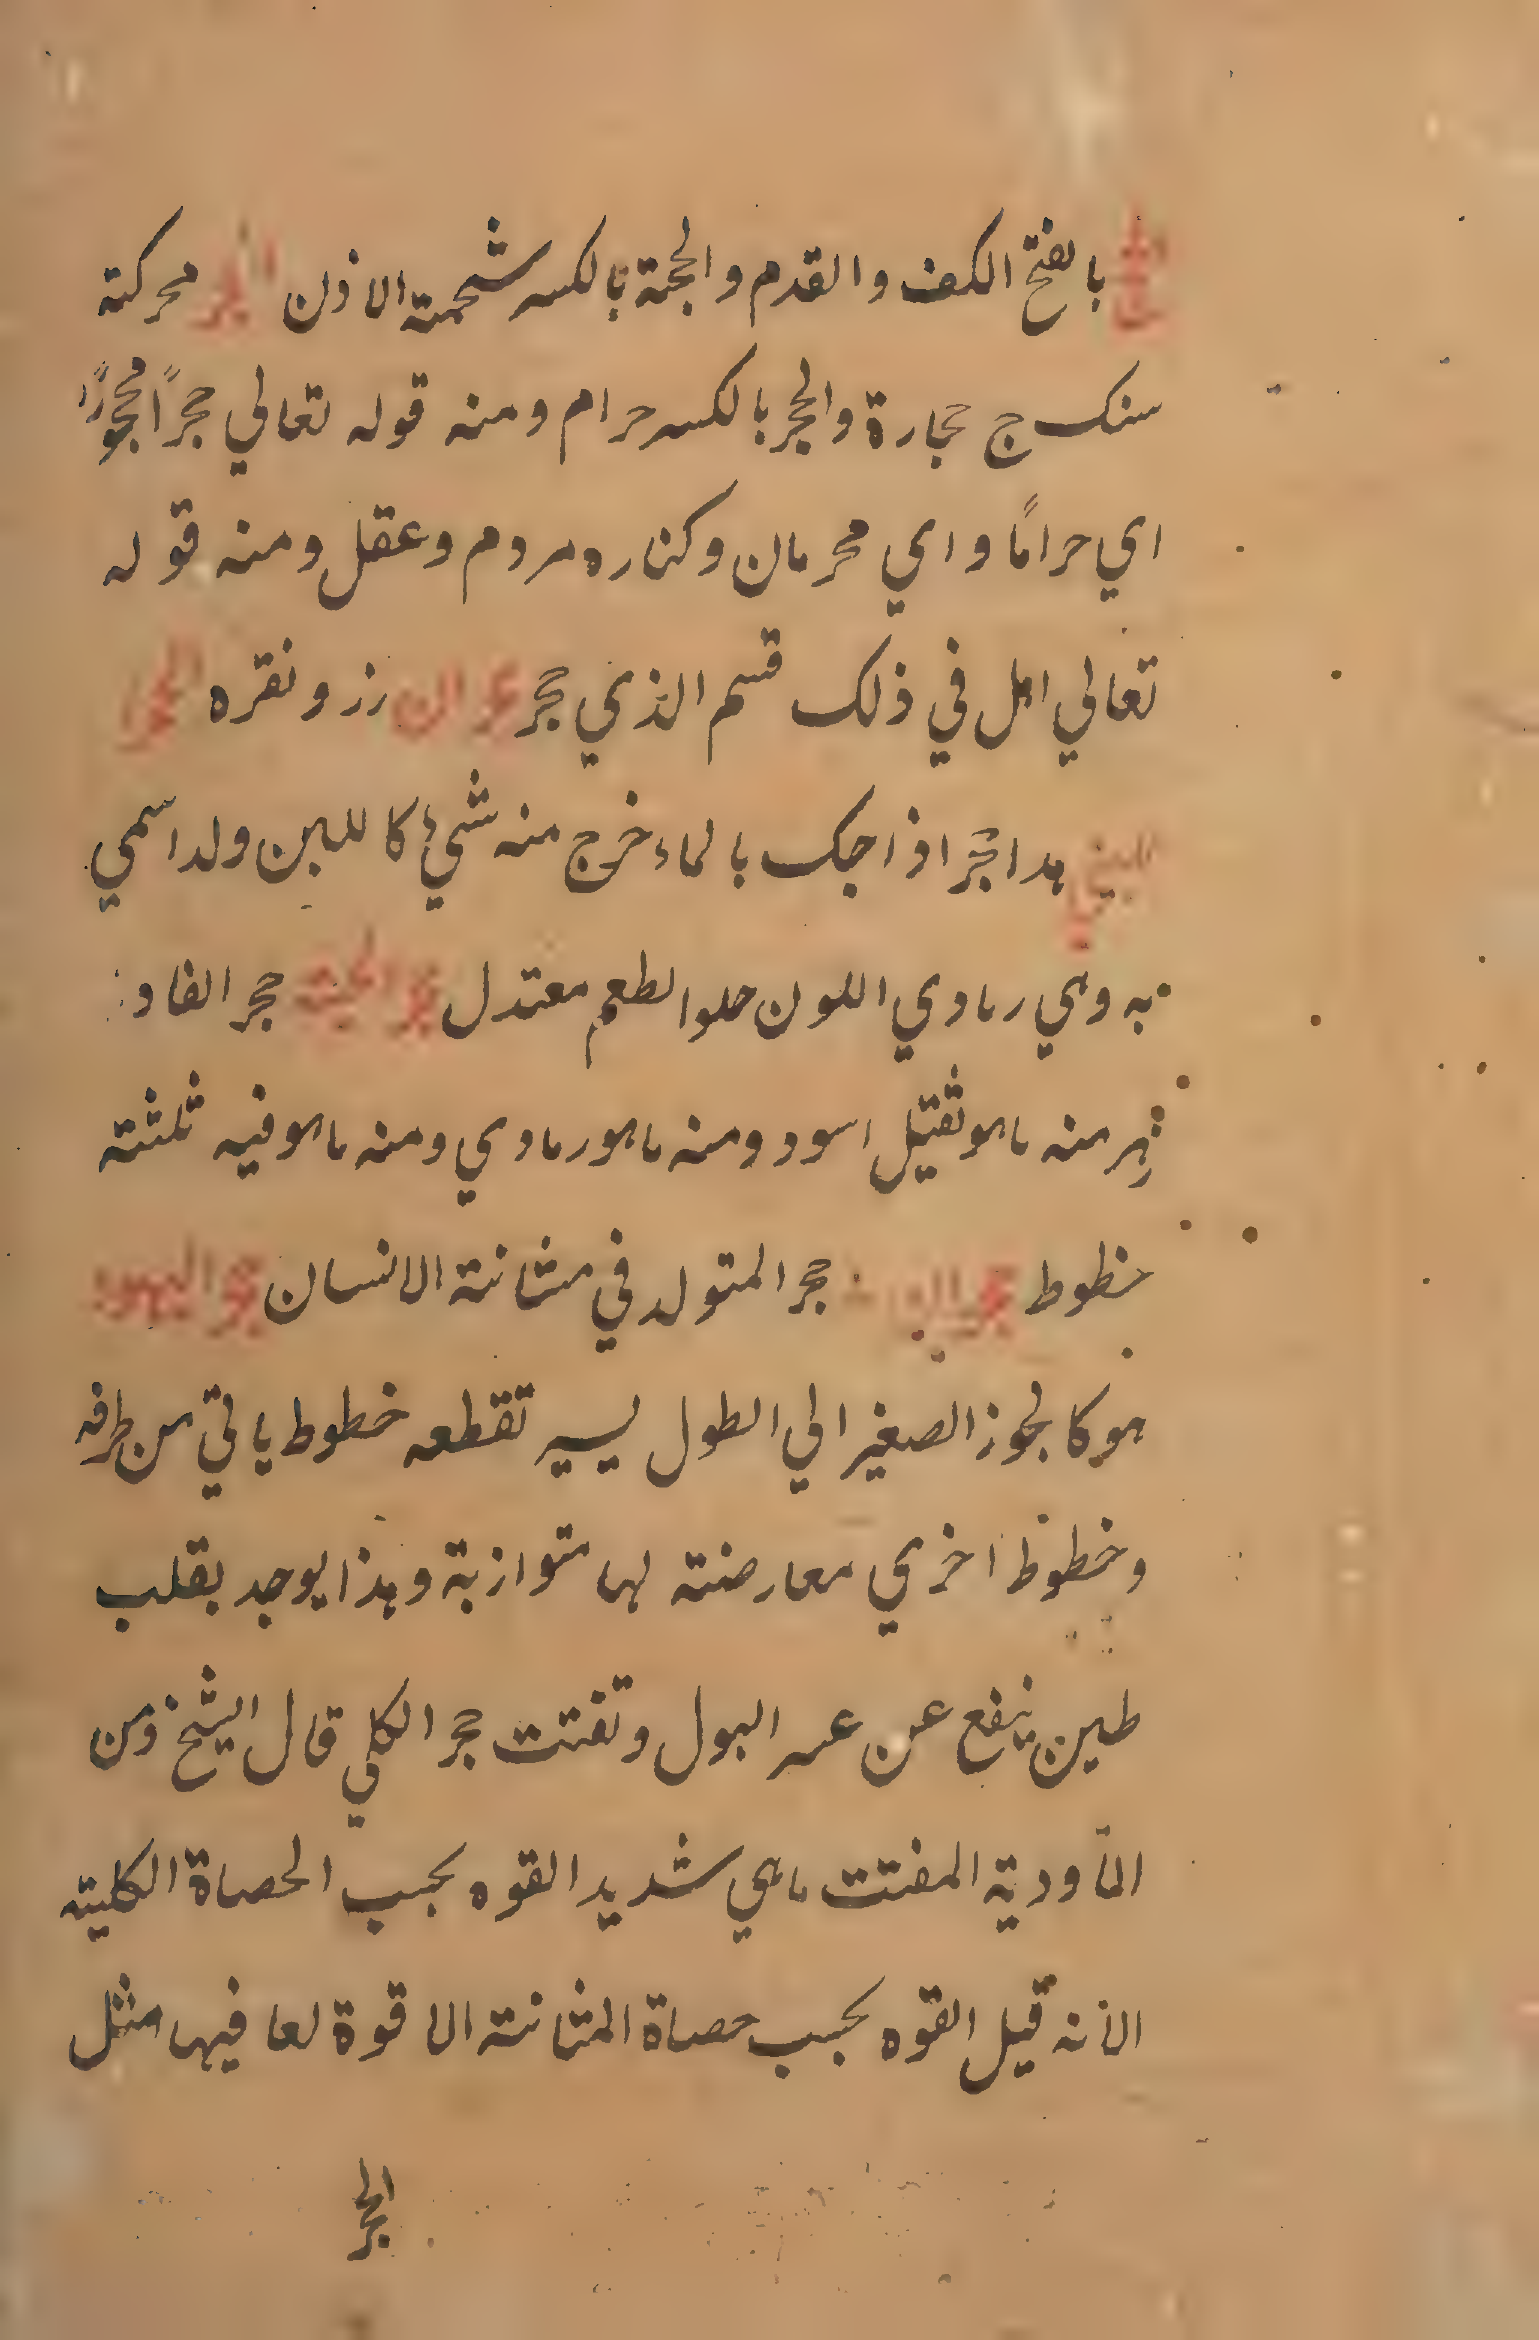 بالفتح الكف والقدم والحجة بالكسر شحمته الاذن الحجر محركته
سنك ج حجارة والحجر بالكسر حرام ومنه قوله تعالي حجرًا محجورًا
اي حرامًا واي محرمان وكناره مردم وعقل ومنه قوله
تعالي اهل في ذلك قسم الذي حجر حجران زر ونقره الحجر
اللبني هدا حجر اذا حك بالماء خرج منه شيئ كاللبن ولدا سمي
به وهي رمادي اللون حلوا لطعم معتدل حجر الحيته حجر الفاد
زهر منه ماهو ثقيل اسود ومنه ماهو رمادي ومنه ماهو فيه ثلثته
خطوط حجر حجر المتولد في مثانته الانسان حجر اليهود
هو كالجوز الصغير الي الطول يسير تقطعه خطوط ياتي من طرفه
وخطوط اخري معارضته لها متوازية وهذا يوجد بقلب
طين ينفع عن عسر البول وتفتت حجر الكلي قال الشيخ ومن
الأودية المفتت ماهي شديد القوه بحسب الحصاة الكليته
الانه قيل القوه بحسب حصاة المثانته الا قوة لها فيها مثل
الحجر